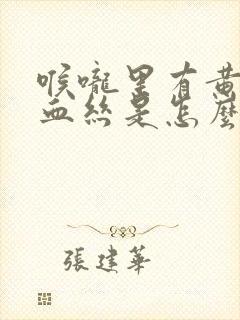 喉嚨里有黃
血絲是怎麼
張建華